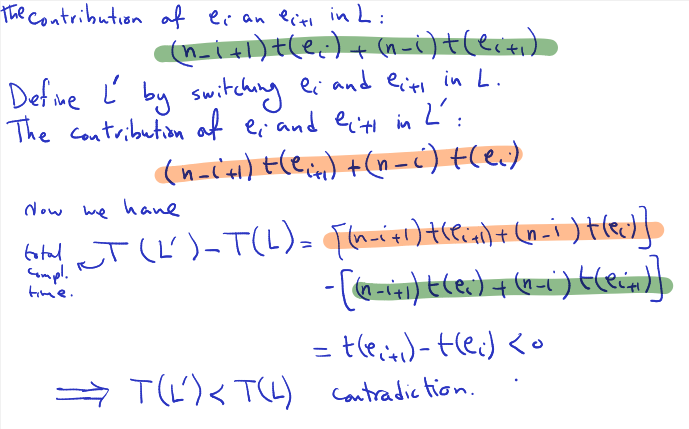 The contribution of ei an ei+1 in L :
(n-i+1) t(ei) + (n-i) t(ei+1)
Define L' by switching ei and ei+1 in L.
The contribution of ei and ei+1 in L' :
(n-i+1) t(ei+1) + (n-i) t(ei)
Now we have
total compl. time. T(L') - T(L) = [(n-i+1) t(ei+1) + (n-i) t(ei)]
- [(n-i+1) t(ei) + (n-i) t(ei+1)]
= t(ei+1) - t(ei) < 0
⟹ T(L') < T(L) contradiction.